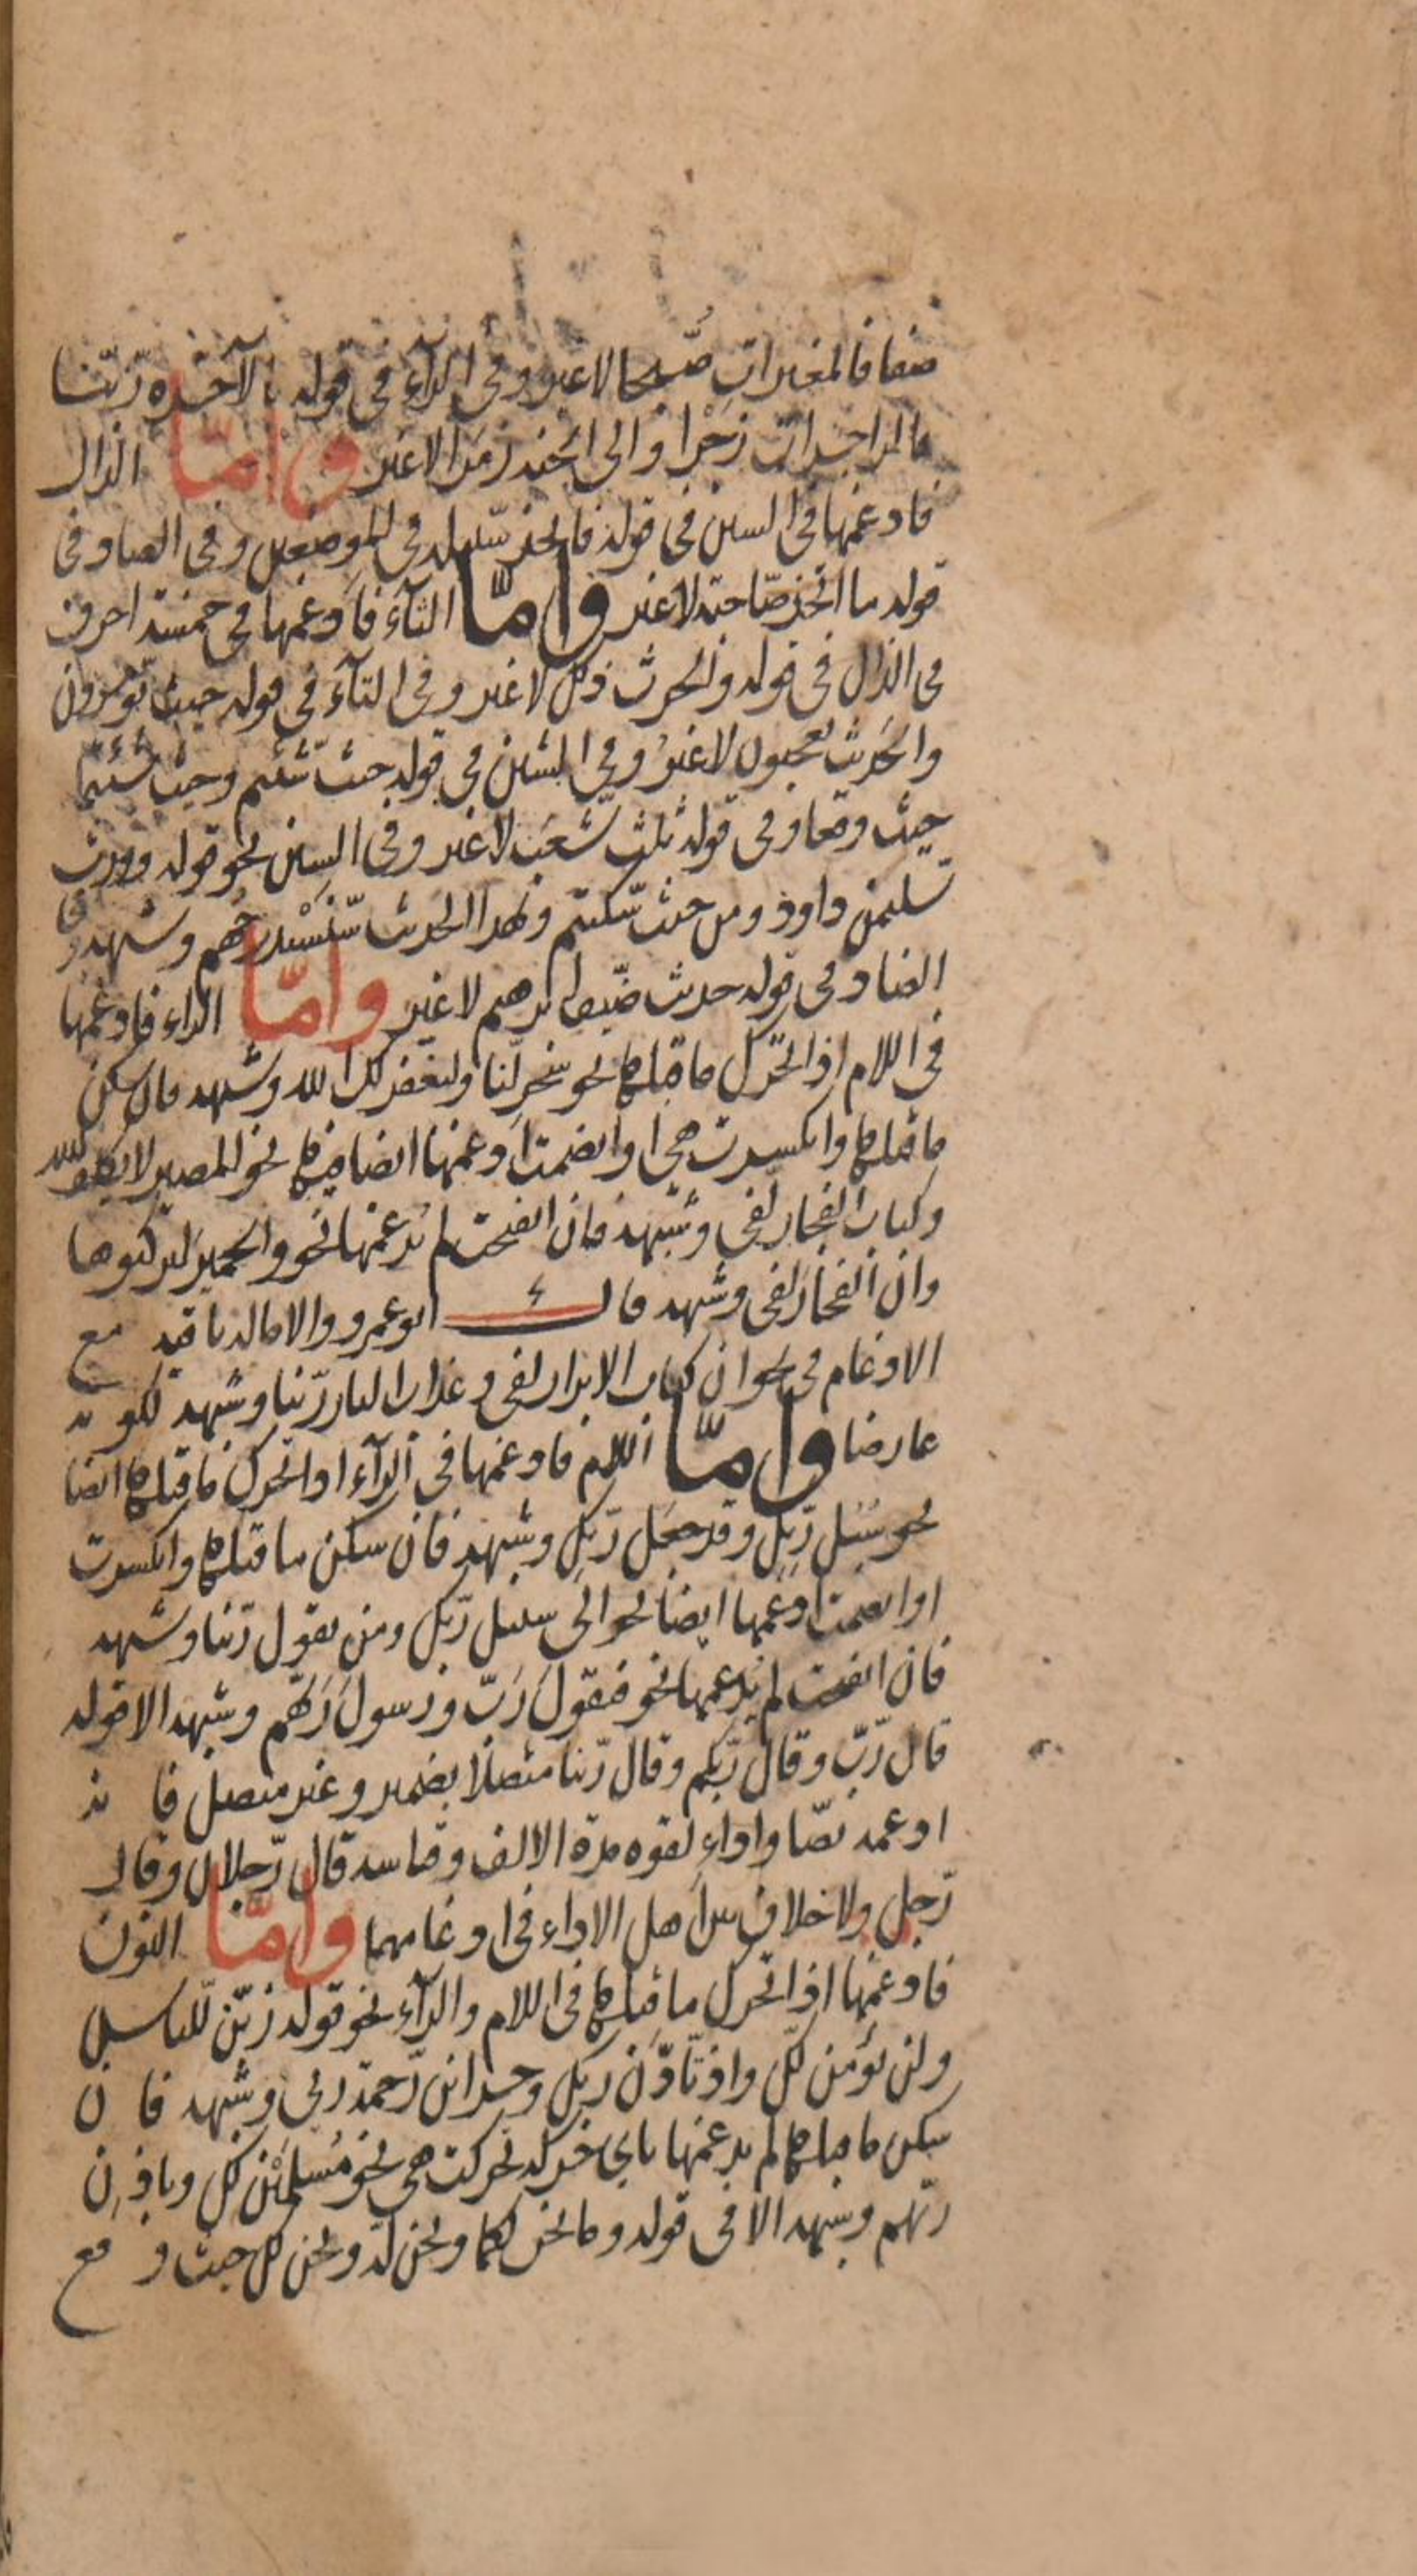 صفا فالمغيرات صّبحا لا غير وفى الزآء فى قوله بالآخرة زّيّنا
فالزاجرات زّجْرا و الى الجنة زّمَرا لا غير وامّا الذال
فادغمها فى السين فى قوله فاتخذ سّبيله فى الموضعين وفى الصاد فى
قوله ما اتخذ صّاحبة لا غير وامّا الثآء فادغمها فى خمسة احرف
فى الذال فى قوله والحرث ذّلك لا غير وفى التآء فى قوله حيث تّؤمرون
والحَديث تّعجبون لا غيرُ وفى الشين فى قوله حيث شّئتم وحيث شّئتما
حيث وقعا وفى قوله ثلث شّعَب لا غير وفى السين نحو قوله وورث
سّليمن داود ومن حيث سّكنتم وبهذا الحديث سّنَسْتدرجُهم وشبهه وفى
الضاد فى قوله حديث ضّيف ابرهيم لا غير وامّا الراء فادغمها
فى اللام اذا تحرّك ما قبلها نحو سَخّر لّنا وليغفر لّك الله وشبهه فان سكن
ما قبلها وانكسرت هى او انضمت ادغمها ايضا فيها نحو المصير لا يكلف الله
وكتاب الفجار لّفى وشبهه فان انفتحت لم يُدغمها نحو والحميرَ لتركبوها
وان الفجارَ لفى وشبهه قال ابو عمرو والامالة باقية مع
الادغام فى نحو ان كتاب الابرار لفى وعذاب النار رّبنا وشبهه لكونه
عارضا وامّا اللام فادغمها فى الرآء اذا تحرك ما قبلها ايضا
نحو سُبُل رّبكِ وقد جعَل رّبكِ وشبهه فان سكن ما قبلها وانكسرت
او انضمت ادغمها ايضا نحو الى سبيل رّبك ومن يقول رّبنا وشبهه
فان انفتحت لم يُدغمها نحو فيقولَ رَبّ ورسولَ رَبّهم وشبهه الا قوله
قال رّبّ وقال رّبّكم وقال رّبنا متصلًا بضمير وغير متصل فانه
ادغمه نصّا واداءً لقوه مدة الالف وقياسه قال رّجلان وقال
رّجل ولا خلاف بين اهل الاداء فى ادغامهما وامّا النون
فادغمها اذا تحرك ما قبلها فى اللام والرآء نحو قوله زيّن لّلناس
ولن نؤمن لّك واذ تَاذّن رّبك وخزائن رّحمة ربى وشبهه فان
سكن ما قبلها لم يدغمها باى حركة تحركت هى نحو مُسلمَيْن لك وباذنِ
ربّهم وشبهه الا فى قوله وما نحن لكما ونحن له ونحن لك حيث وقع